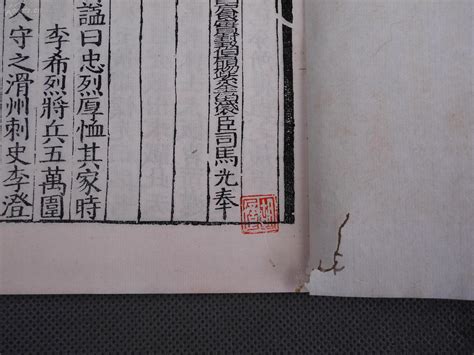 賜紫金魚袋臣司馬光奉
諡曰忠烈厚恤其家時
李希烈將兵五萬圍
人守之滑州刺史李澄